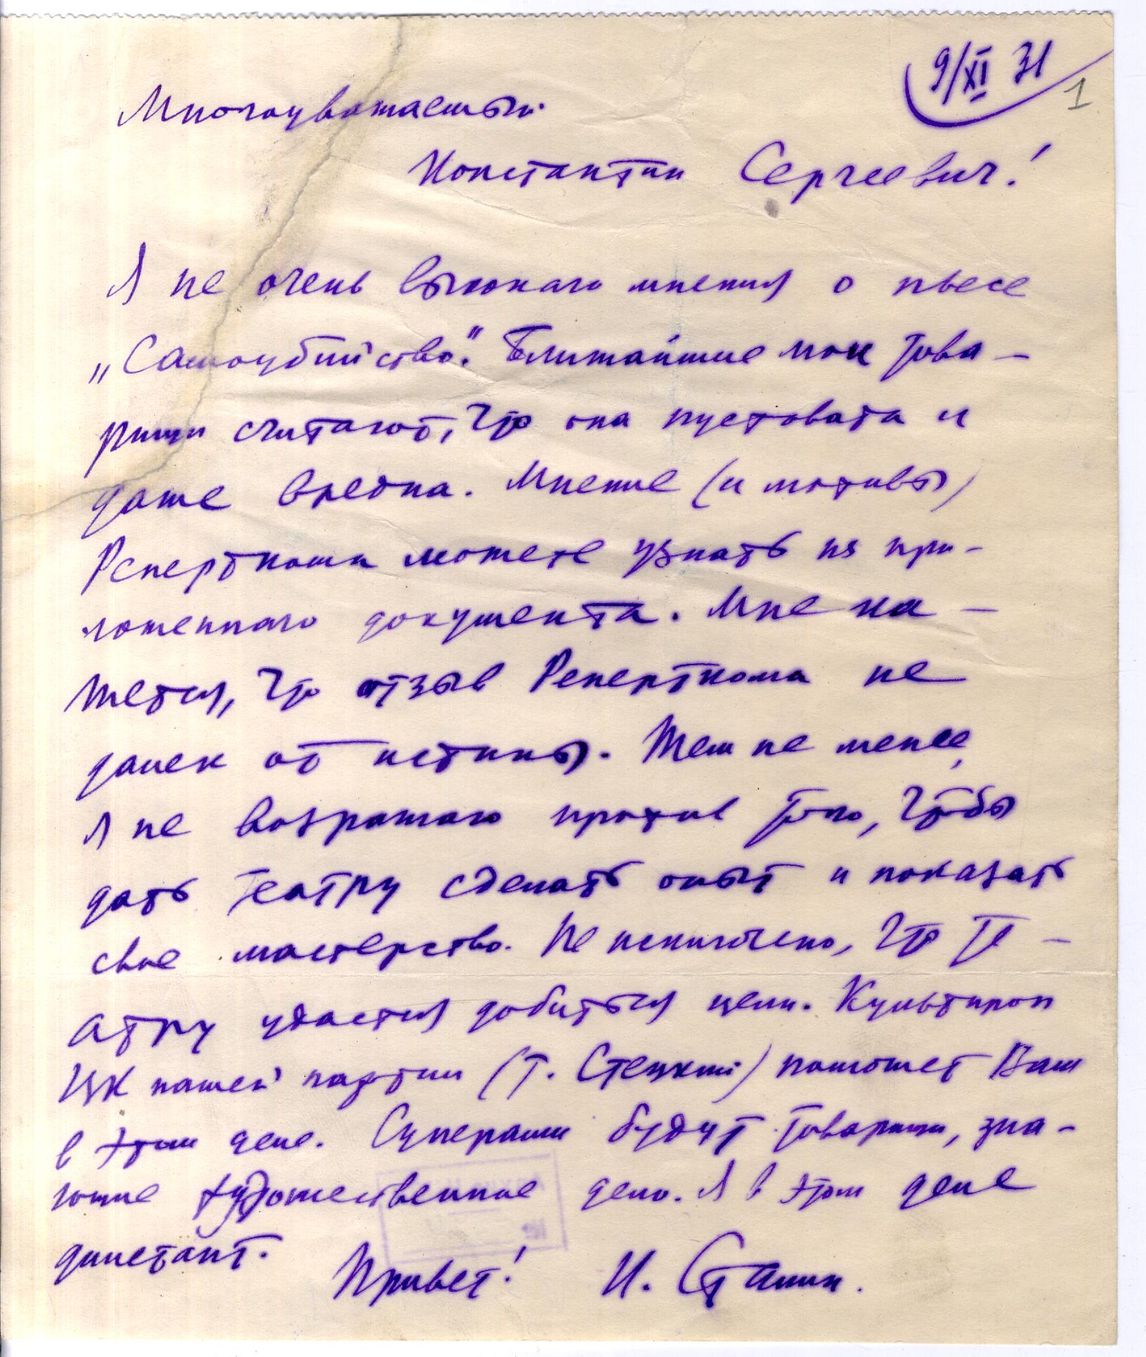 9/XI 31
1
Многоуважаемый
Константин Сергеевич!
Я не очень высокого мнения о пьесе
„Самоубийство“. Ближайшие мои това-
рищи считают, что она пустовата и
даже вредна. Мнение (и мотивы)
Реперткома можете узнать из при-
ложенного документа. Мне ка-
жется, что отзыв Реперткома не
далек от истины. Тем не менее,
я не возражаю против того, чтобы
дать театру сделать опыт и показать
свое мастерство. Не исключено, что те-
атру удастся добиться цели. Культпроп
ЦК нашей партии (т. Стецкий) поможет Вам
в этом деле. Суперами будут товарищи, зна-
ющие художественное дело. Я в этом деле
дилетант.
Привет! И. Сталин.